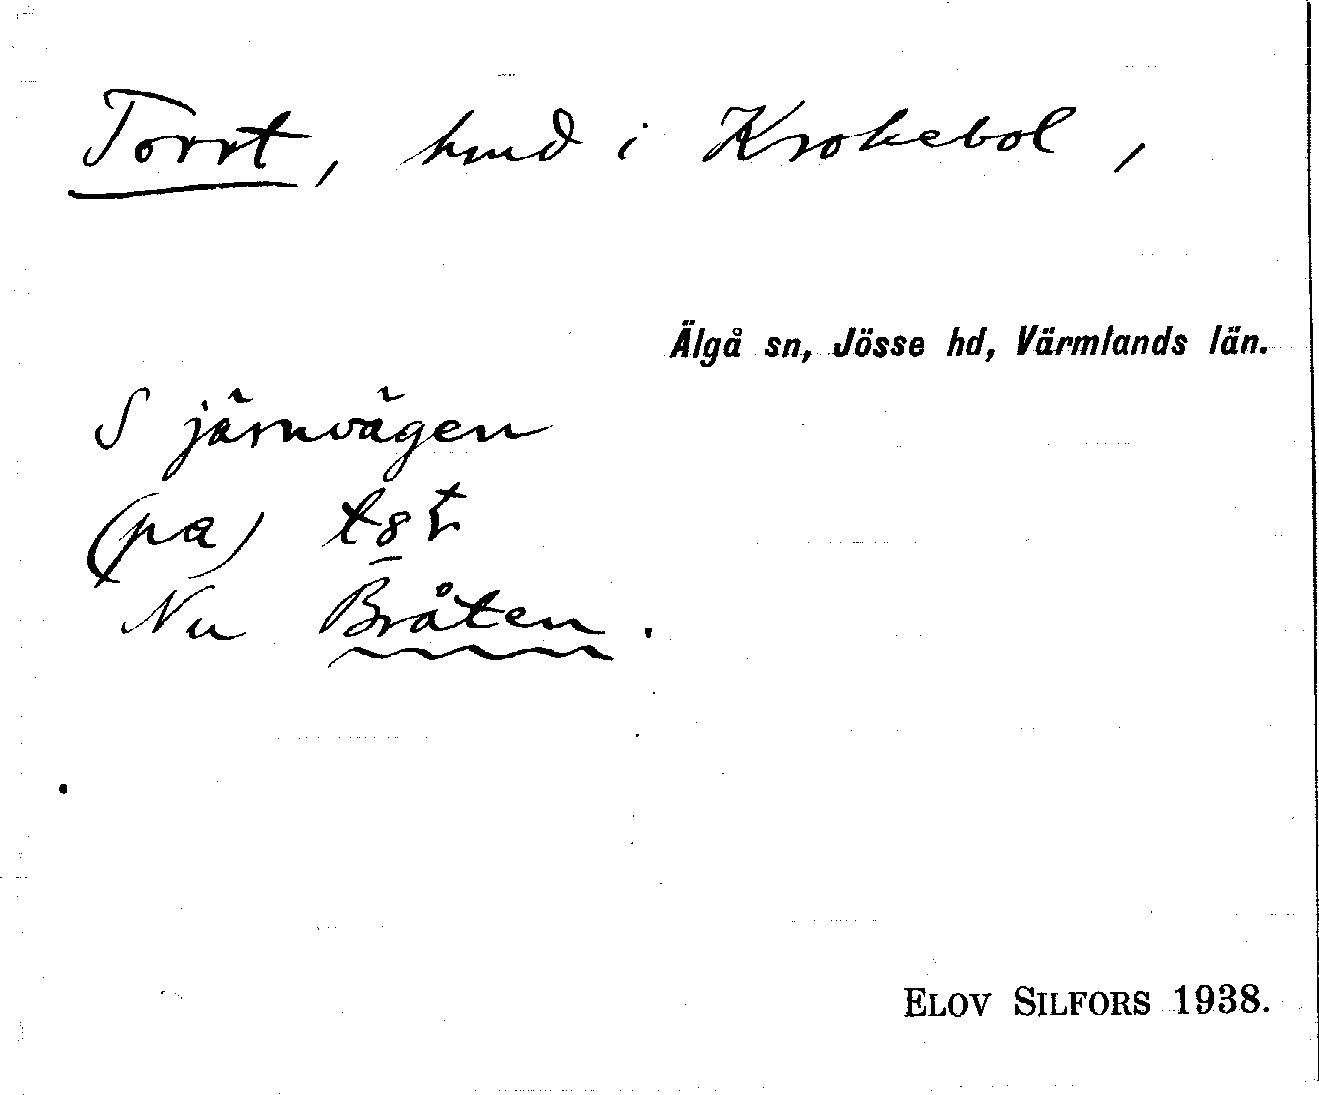 Torrt, hmd i Krokebol,
Älgå sn, Jösse hd, Värmlands län.
S järnvägen
(pa)
Nu Bråten.
ELOV SILFORS 1938.